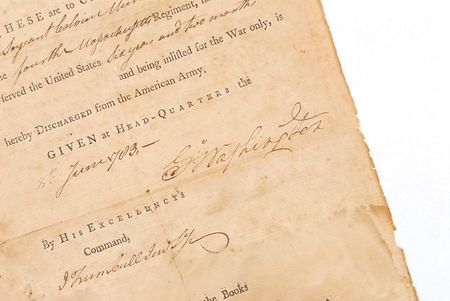 HESE are to C
Serjant
fourth Massachusetts Regiment,
ferved the United States six years and two months
and being inlifted for the War only, is
hereby DISCHARGED from the American Army.
GIVEN at HEAD-QUARTERS the
June 1783.
Go Washington
By HIS EXCELLENCY'S
Command,
J Trumbull Jun Sy
the Books